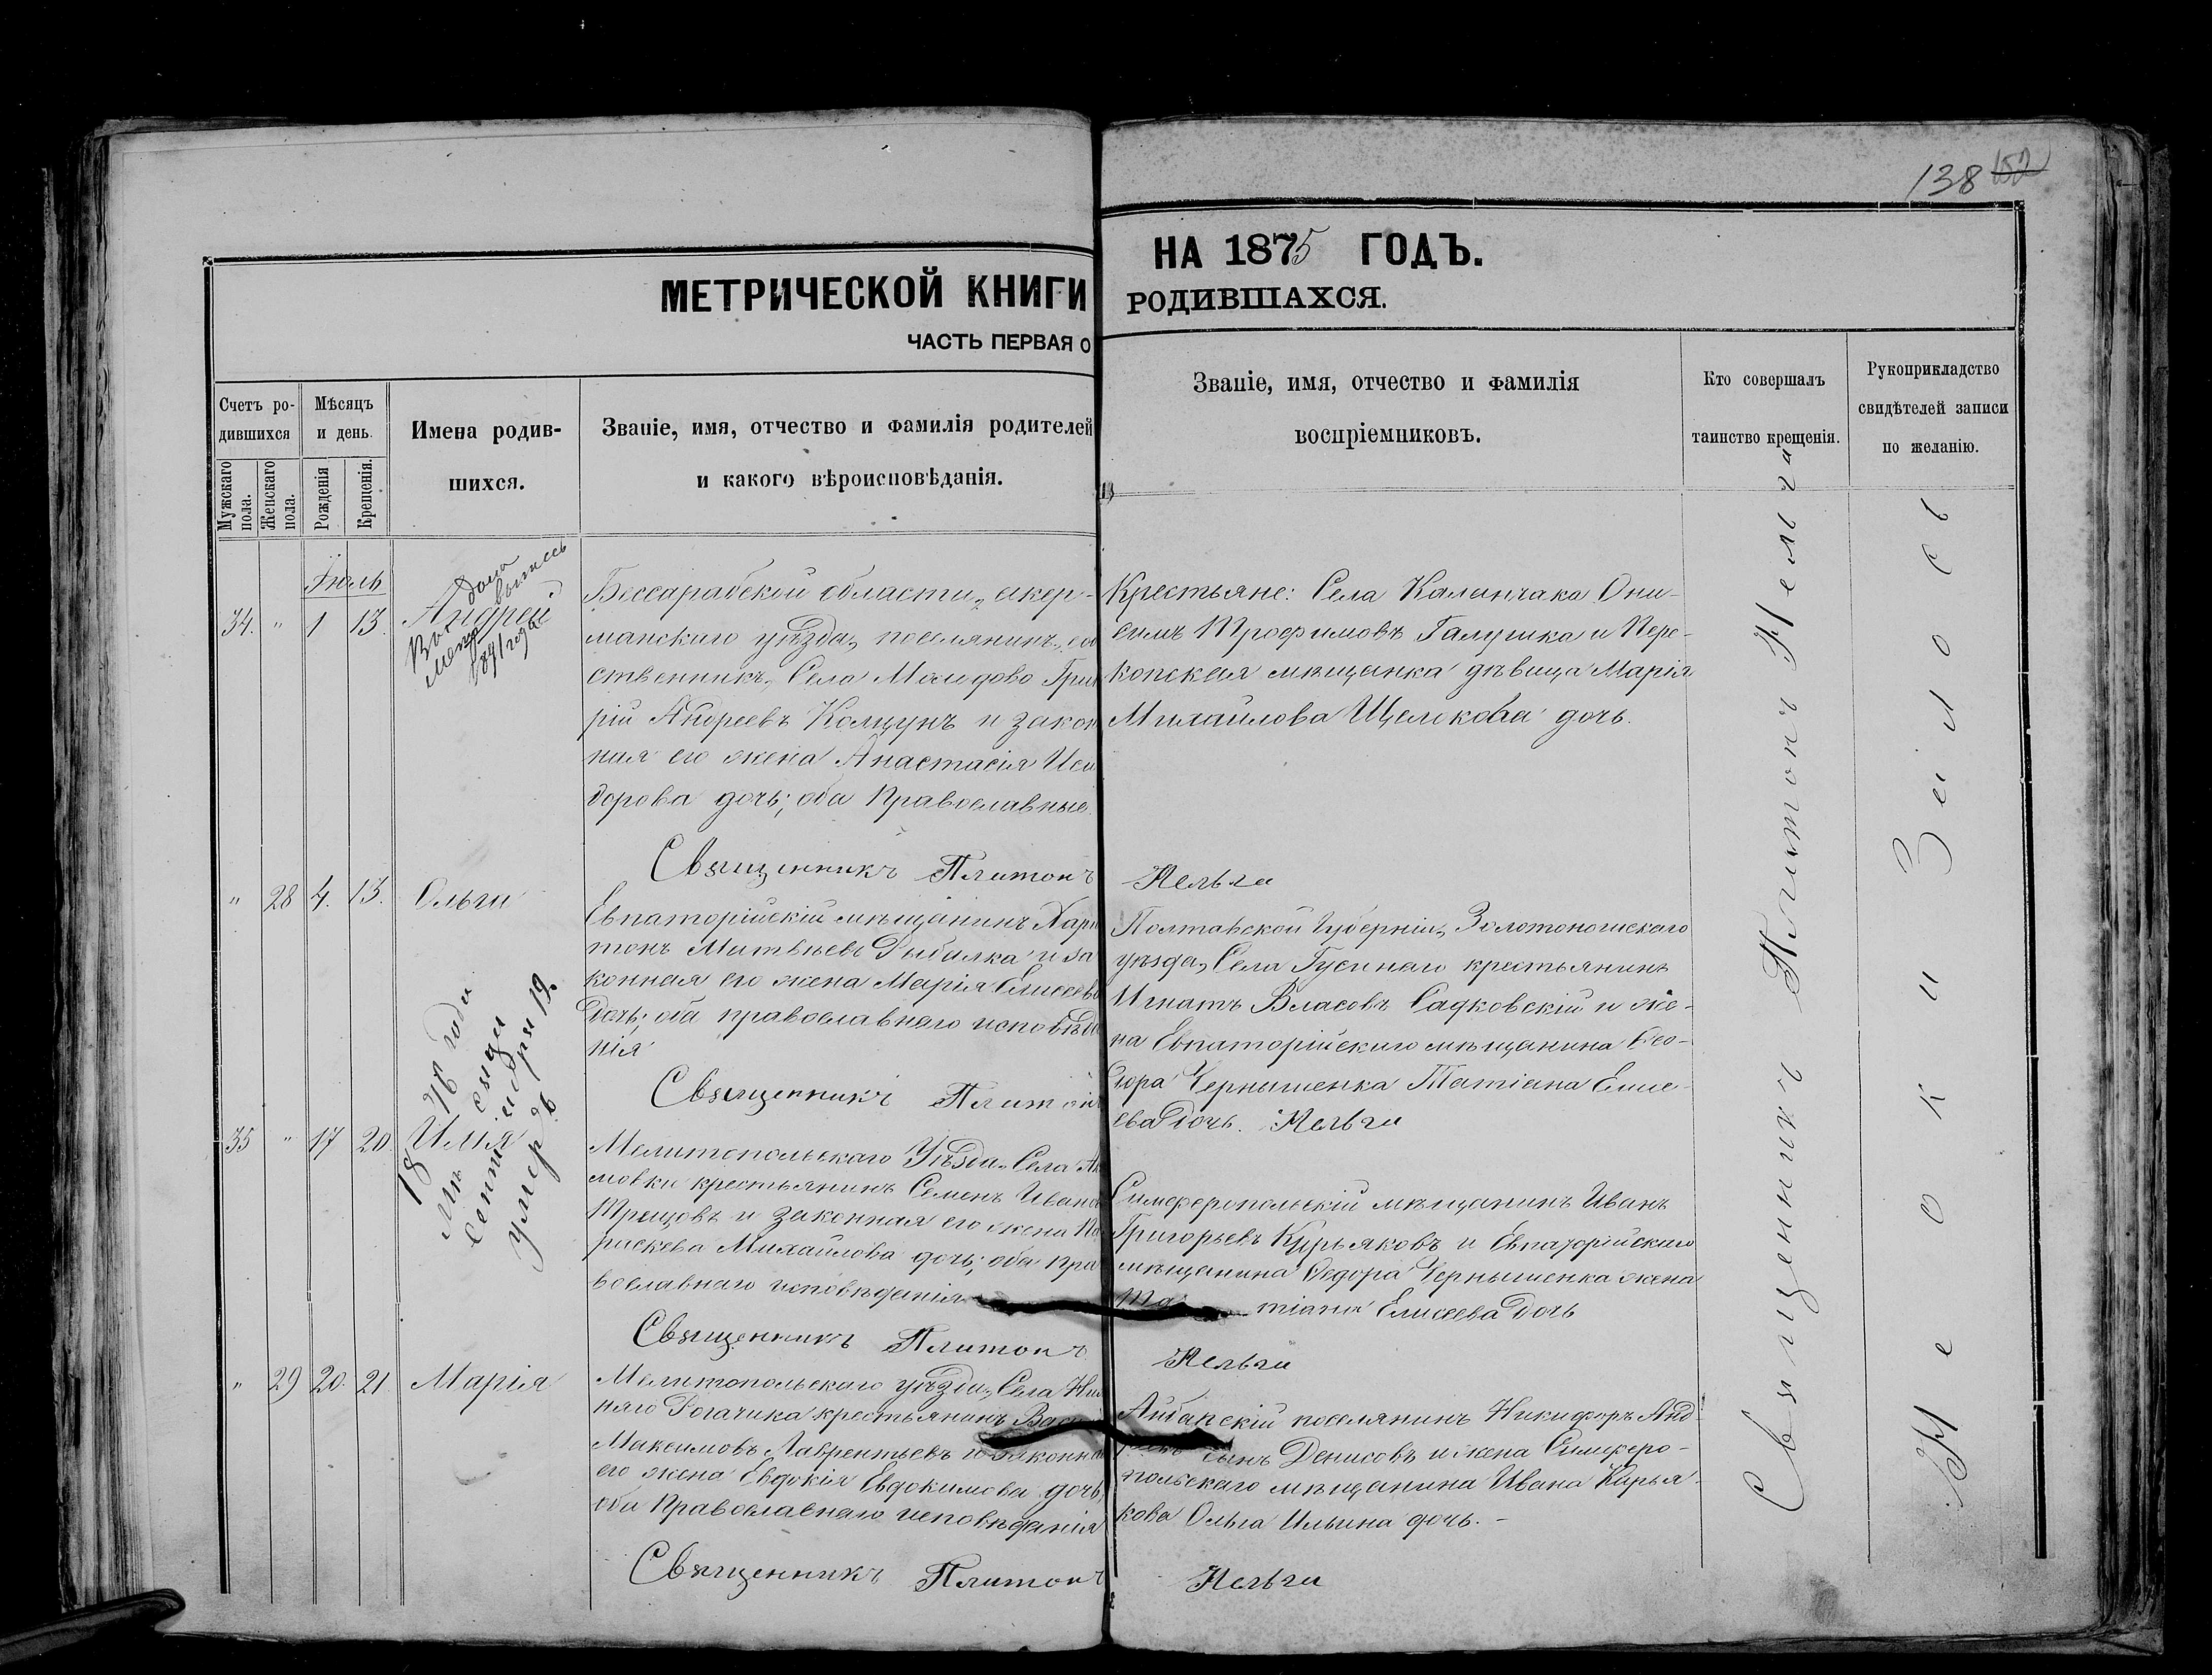 138 152
МЕТРИЧЕСКОЙ КНИГИ НА 1875 ГОДЪ.
ЧАСТЬ ПЕРВАЯ О РОДИВШАХСЯ.
Счетъ ро-
дившихся
Мужскаго пола.
Женскаго пола.
Мѣсяцъ
и день.
Рожденія
Крещенія.
Имена родив-
шихся.
Званіе, имя, отчество и фамилія родителей
и какого вѣроисповѣданія.
Званіе, имя, отчество и фамилія
воспріемниковъ.
Кто совершалъ
таинство крещенія.
Рукоприкладство
свидѣтелей записи
по желанію.
Іюль
34. " 1 13. Андрей
Бессарабской области, акер-
манскаго уѣзда, поселянинъ, соб
ственникъ, Села
рій Андреевъ Колцунъ и закон
ная его жена Анастасія Иси
дорова дочь; оба Православные.
Крестьяне: Села Каланчака Они-
симъ Трофимовъ Галушка и Пере-
копская мѣщанка дѣвица Марія
Михайлова Щелокова дочь.
Священникъ Платонъ Нельга
" 28 4. 13. Ольга
Евпаторійскій мѣщанинъ Хари
тонъ Матвѣевъ Рыбалка и за
конная его жена Марія Елисеева
дочь; оба православнаго исповѣда
нія
Полтавской Губерніи, Золотоношскаго
уѣзда, Села Гусинаго крестьянинъ
Игнатъ Власовъ Садковскій и же-
на Евпаторійскаго мѣщанина Фео-
дора Чернышенка Татіана Елисе-
ева дочь.
Священникъ Платонъ Нельга
35 " 17 20. Илія
1876 года
сентября 19.
умеръ
Мелитопольскаго Уѣзда, Села Аки
мовки крестьянинъ Семенъ Иванов
Трещовъ и законная его жена Па
раскева Михайлова дочь; оба пра
вославнаго исповѣданія
Симферопольскій мѣщанинъ Иванъ
Григорьевъ Курьяковъ и Евпаторійскаго
мѣщанина Федора Чернышенка жена
Татіана Елисеева дочь
Священникъ Платонъ Нельга
" 29 20. 21. Марія
Мелитопольскаго уѣзда, Села Ниж
няго Рогачика крестьянинъ
Максимовъ Лаврентьевъ и законная
его жена Евдокія Евдокимова дочь,
оба Православнаго исповѣданія
поселянинъ Никифоръ Анд-
сынъ Денисовъ и жена Симферо-
польскаго мѣщанина Ивана Кирья-
кова Ольга Ильина дочь. -
Священникъ Платонъ Нельга
Священникъ Платонъ Нельга